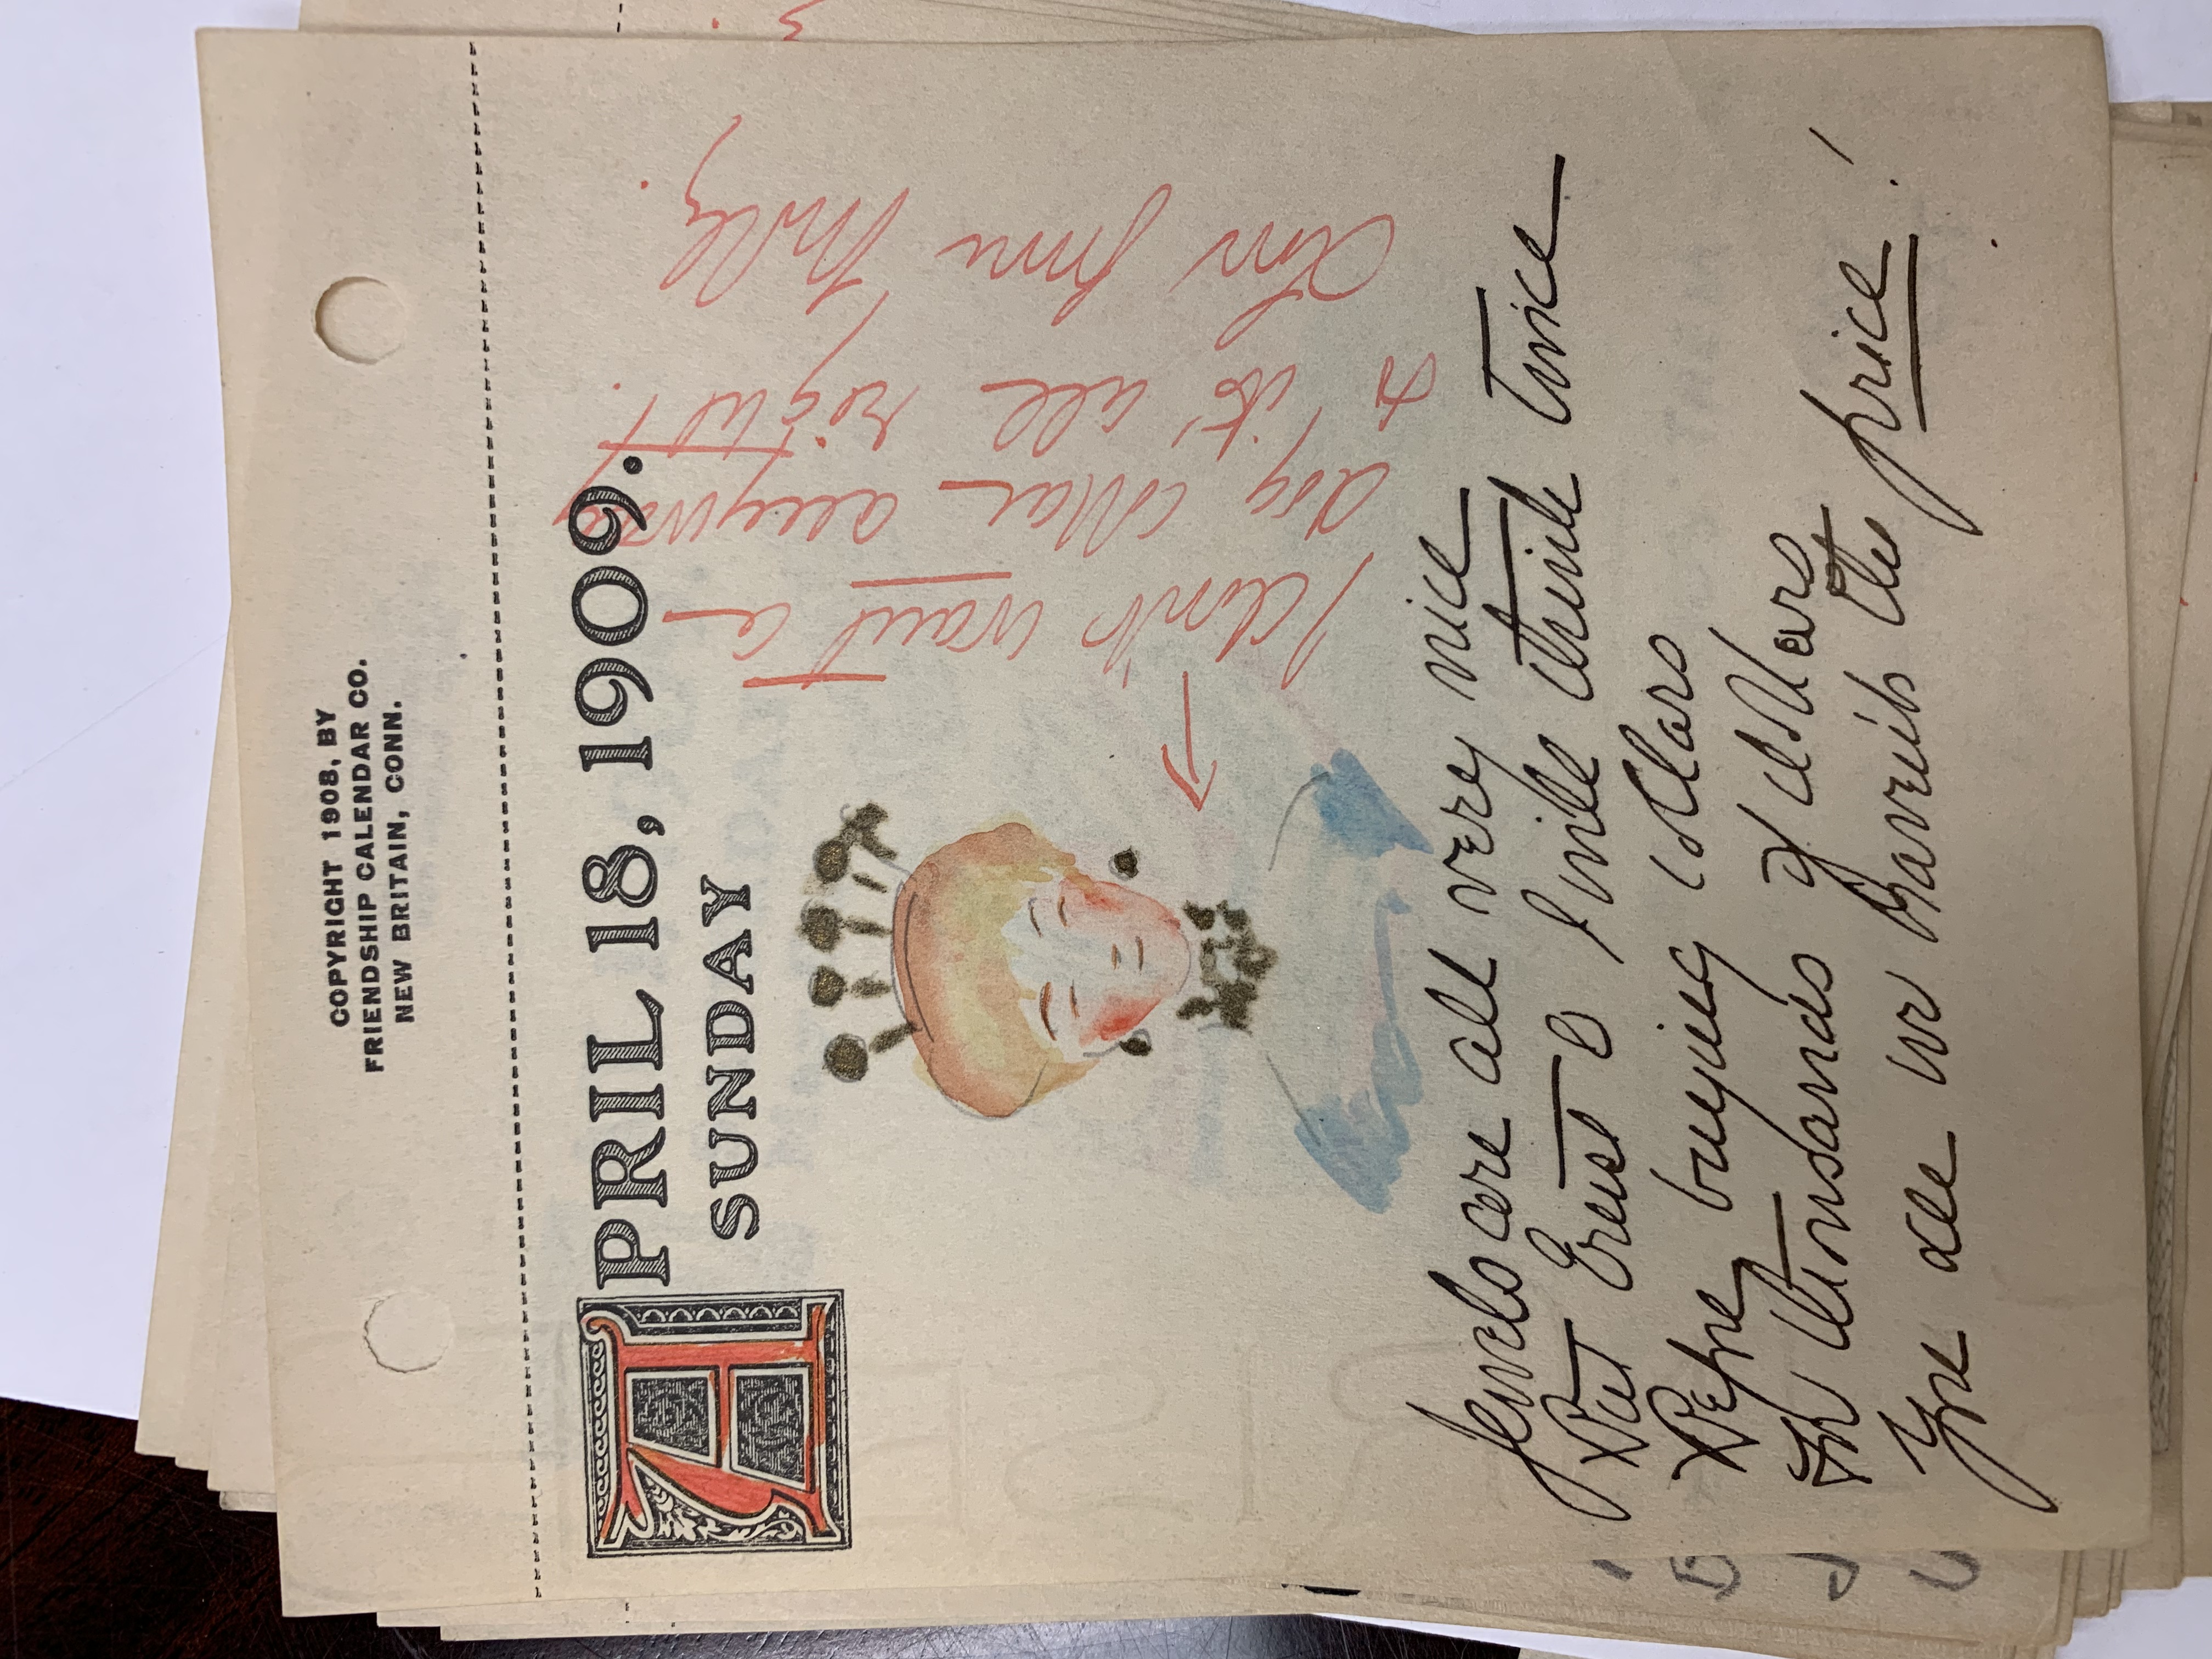 COPYRIGHT 1908, BY
FRIENDSHIP CALENDAR CO.
NEW BRITAIN, CONN.
APRIL 18, 1909.
SUNDAY
I don't want a
dog collar anyway
so its' all right.
Love from Molly.
Jewels are all very nice
But Ernest & I will think twice
Before buying collars
For thousands of dollars
You see we haven't the price!